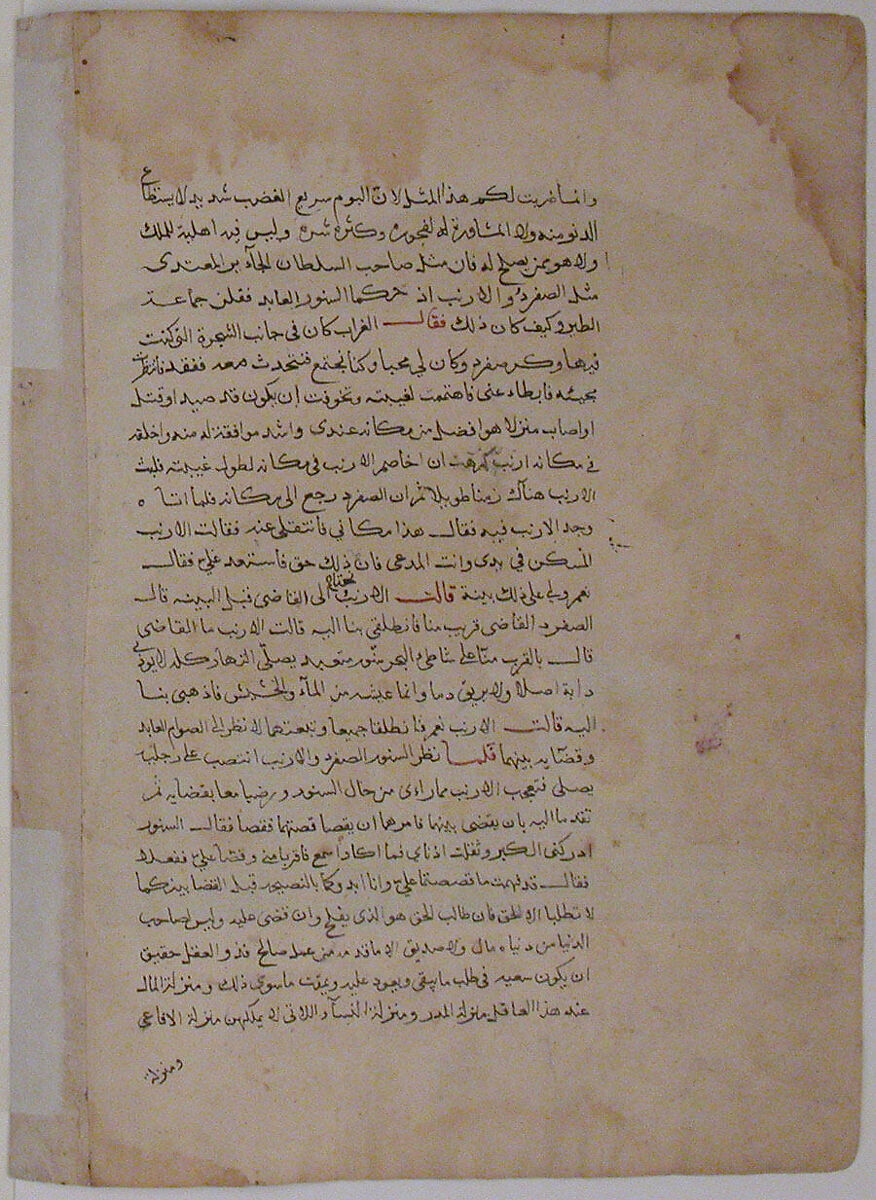 وانما ضربت لكم هذا المثل لان البوم سريع الغضب شديد لا يستطاع
الدنو منه ولا المشاورة له لفجوره وكثرة شره وليس فيه اهلية للملك
ولا هو ممن يصلح له فان مثل صاحب السلطان الجآئر المعتدى
مثل الصفرد والارنب اذ حركما السنور العابد فقلن جماعة
الطير وكيف كان ذلك فقالــ الغراب كان فى جانب الشجرة التى كنت
فيها وكر صفرد وكان لي محبا وكنا نجتمع فنتحدث معه ففقد فانتظرت
مجيئه فابطاء عنى فاهتممت لغيبته وتخوفت ان يكون قد صيد او قتل
او اصاب منزلا هو افضل من مكانه عندى واشد موافقة له منه واخلفه
فى مكانه ارنب كرهت ان اخاصم الارنب فى مكانه لطول غيبته فلبث
الارنب هناك زمنا طويلا ثم ان الصفرد رجع الى مكانه فلما اتاه
وجد الارنب فيه فقالــ هذا مكاني فانتقلى عنه فقالت الارنب
المسكن في يدى وانت المدعى فان ذلك حق فاستعد علي فقالــ
نعم ولى على ذلك بينة قالت الارنب نحتاج الى القاضى قبل البينه قالــ
الصفرد القاضى قريب منا فانطلقي بنا اليه قالت الارنب ما القاضى
قالــ بالقرب منا على شاطئ البحر سنور متعبد يصلى النهار كله لا يوذى
دابة اصلا ولا يريق دما وانما عيشه من المآء والحشيش فاذهبى بنا
اليه قالت الارنب نعم فانطلقا جميعا وتبعتهما لانظر الى الصوام العابد
وقضآيه بينهما فلما نظر السنور الصفرد والارنب انتصب على رجليه
يصلى فتعجب الارنب مما راءى من حال السنور ورضيا معا بقضايه ثم
تقدما اليه بان يقضى بينهما فامرهما ان يقصا قصتهما فقصا فقالــ السنور
ادركنى الكبر وثقلت اذناى فما اكاد اسمع فاقربا منى وقصا علي ففعلا
فقالــ قد فهمت ما قصصتما علي وانا ابدوكما بالنصيحة قبل القضا بينكما
لا تطلبا الا الحق فان طالب الحق هو الذى يفلح وان قضى عليه وليس لصاحب
الدنيا من دنياه مال ولا صديق الا ما قدمه من عمل صالح فذو العقل حقيق
ان يكون سعيه فى طلب ما يبقى ويعود عليه ويمقت ما سوى ذلك ومنزلة المال
عند هذا العاقل منزلة المدر ومنزلة النسآء اللاتى لا يملكهن منزلة الافاعى
ومنزلة